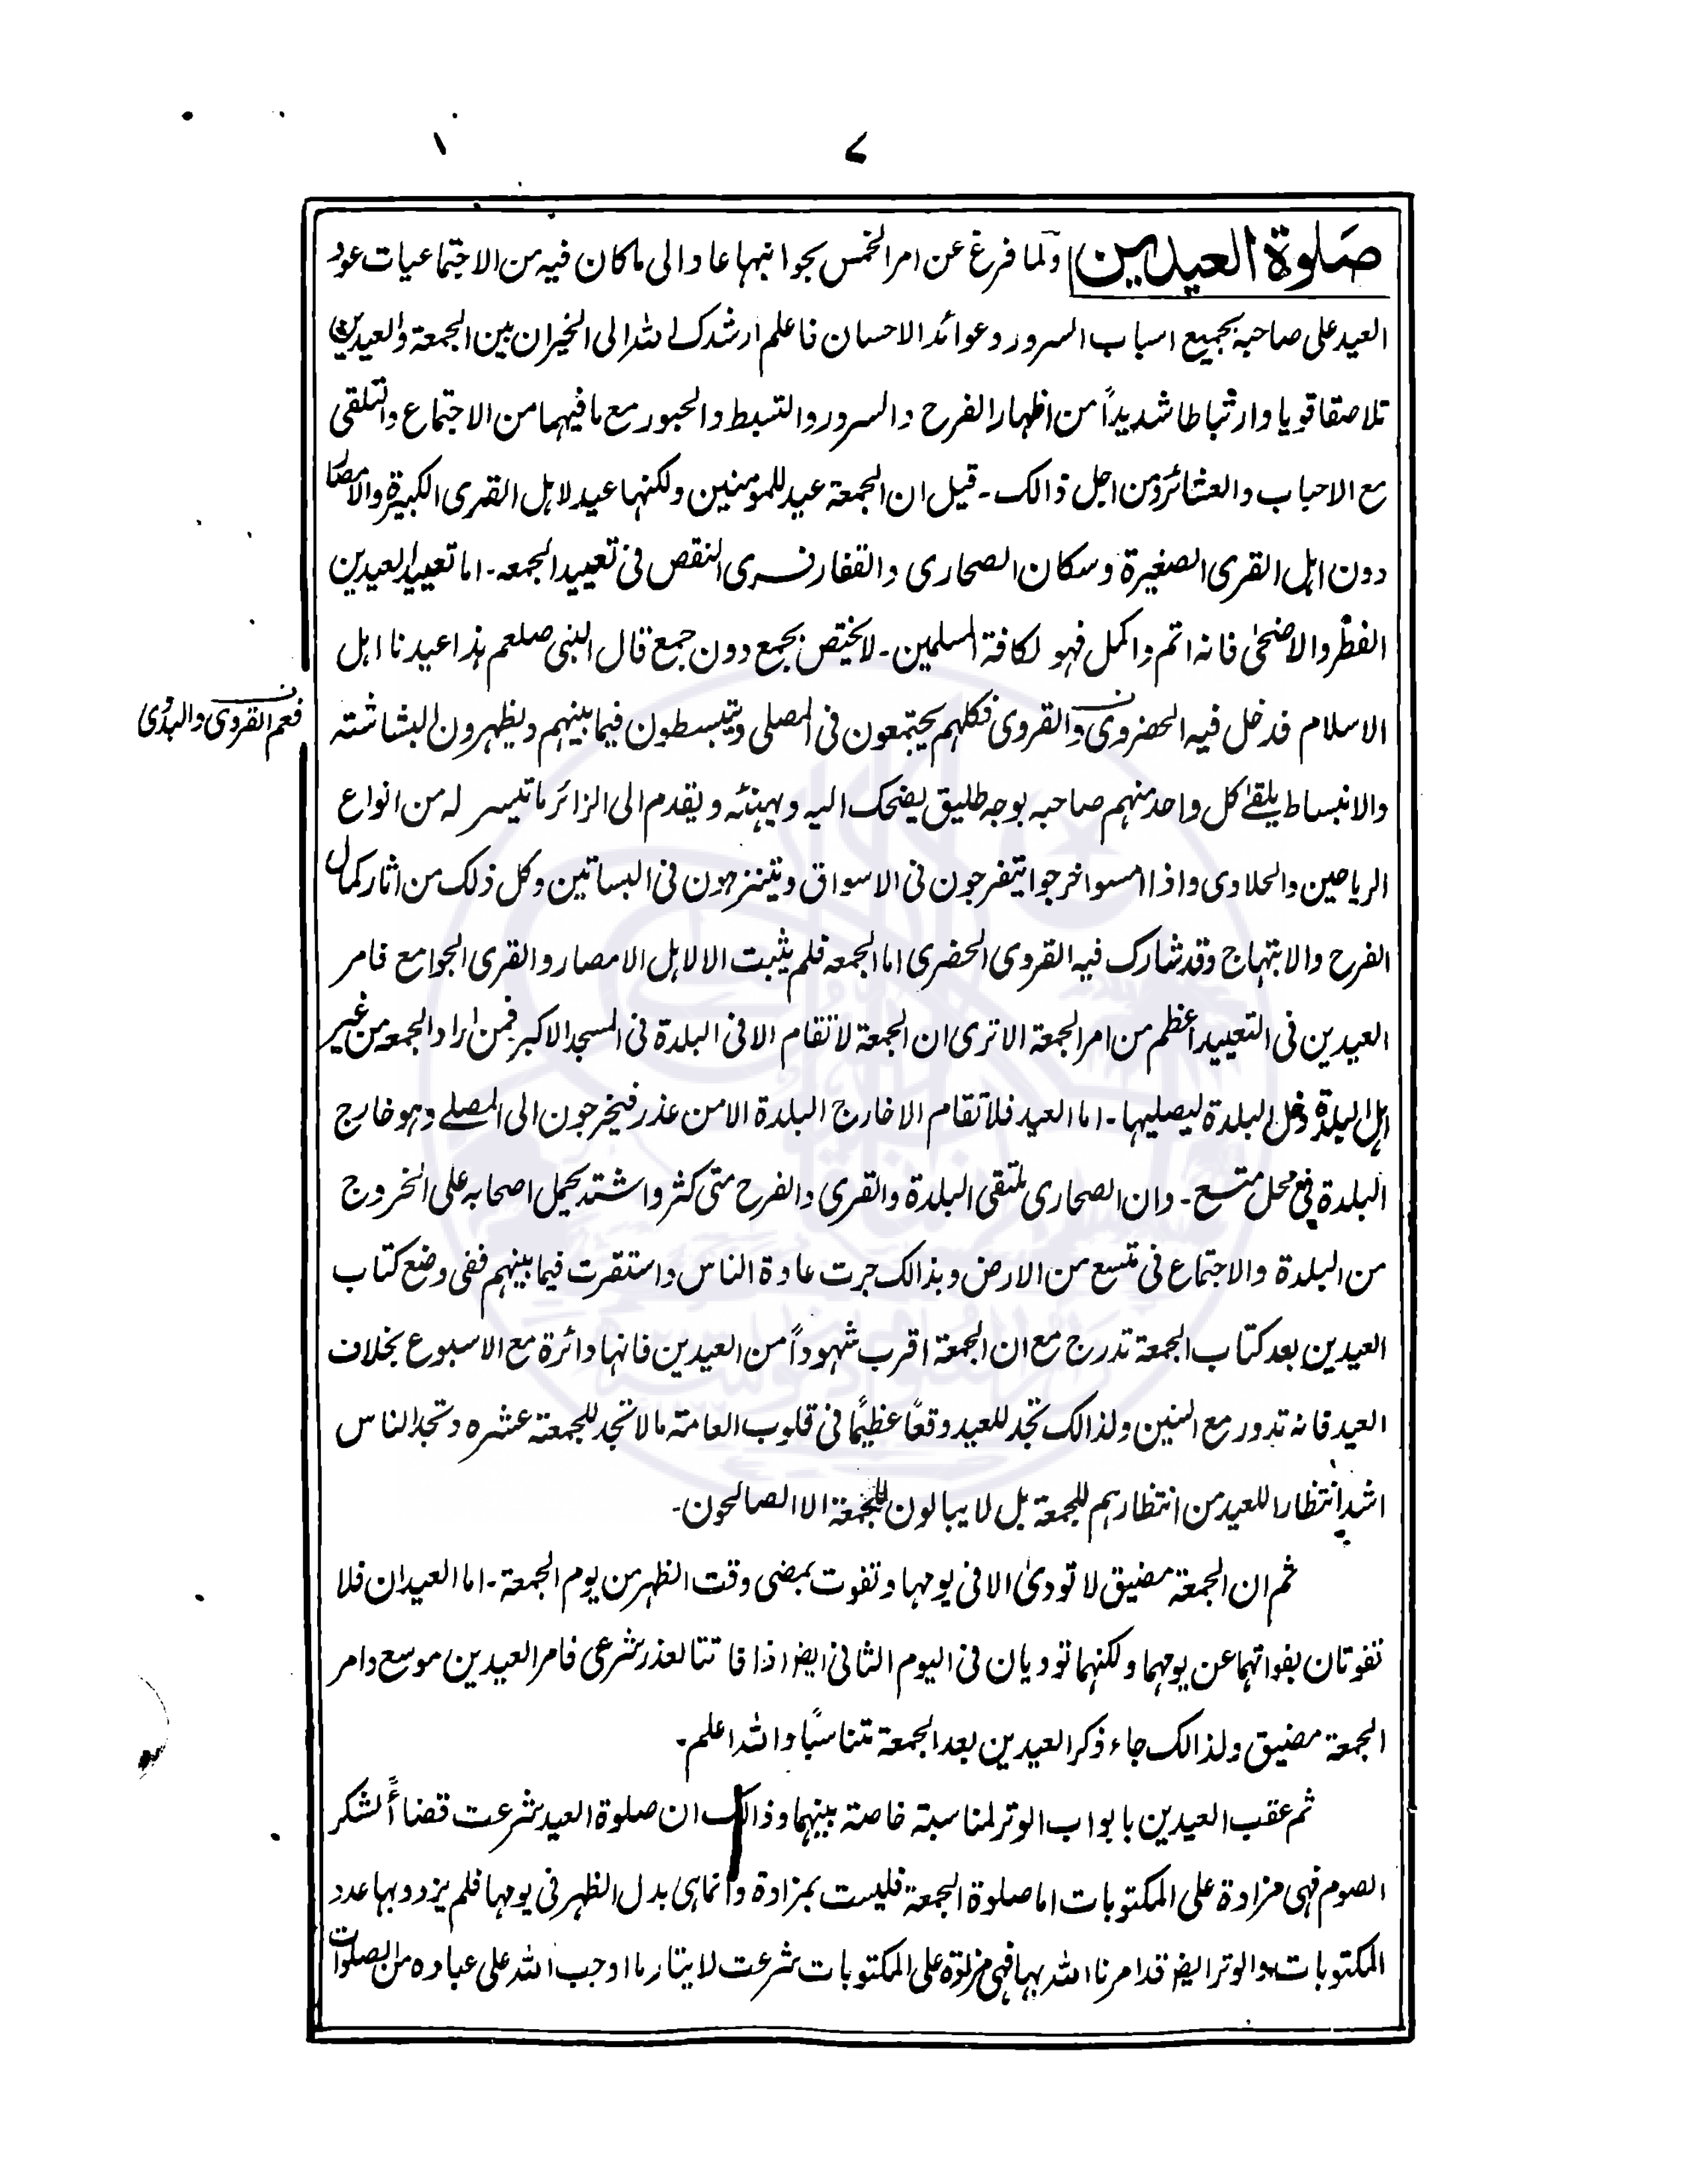 ۷
صلوة العيدين ولما فرغ عن امر الخمس بجوانبها عاد الى ما كان فيه من الاجتماعيات عود
العيد على صاحبه بجميع اسباب السرور وعوائد الاحسان فاعلم ارشدك الله الى الخير ان بين الجمعة والعيدين
تلاصقا قويا وارتباطا شديداً من اظهار الفرح والسرور والتبسط والحبور مع ما فيهما من الاجتماع والتلقى
مع الاحباب والعشائر ومن اجل ذالك - قيل ان الجمعة عيد للمومنين ولكنها عيد لاهل القرى الكبيرة والامصار
دون اهل القرى الصغيرة وسكان الصحارى والقفار فسرى النقص فى تعييد الجمعه - اما تعييد العيدين
الفطر والاضحىٰ فانه اتم واكمل فهو لكافة المسلمين - لا يختص بجمع دون جمع قال النبى صلعم هذا عيدنا اهل
الاسلام فدخل فيه الحضروى والقروى فكلهم يجتمعون فى المصلى ويتبسطون فيما بينهم ويظهرون البشاشته
فعم القروى والبدوى
والانبساط يلقےٰ كل واحد منهم صاحبه بوجه طليق يضحك اليه ويهنئه ويقدم الى الزائر ما تيسر له من انواع
الرياحين والحلاوى واذا امسوا خرجوا يتفرجون فى الاسواق ويتنزهون فى البساتين وكل ذلك من اثار كمال
الفرح والابتهاج وقد شارك فيه القروى الحضرى اما الجمعه فلم يثبت الا لاهل الامصار والقرى الجوامع فامر
العيدين فى التعييد اعظم من امر الجمعة الا ترى ان الجمعة لا تقام الا فى البلدة فى المسجد الاكبر فمن اراد الجمعه من غير
اهل البلدة دخل البلدة ليصليها - اما العيد فلا تقام الا خارج البلدة الا من عذر فيخرجون الى المصلے وهو خارج
البلدة فى محل متسع - وان الصحارى ملتقى البلدة والقرى والفرح متى كثر واشتد يحمل اصحابه على الخروج
من البلدة والاجتماع فى متسع من الارض وبذالك جرت عادة الناس واستقرت فيما بينهم ففى وضع كتاب
العيدين بعد كتاب الجمعة تدرج مع ان الجمعة اقرب شهوداً من العيدين فانها دائرة مع الاسبوع بخلاف
العيد فانه تدور مع السنين ولذالك تجد للعيد وقعًا عظيمًا فى قلوب العامته ما لا تجد للجمعته عشره وتجد الناس
اشد انتظارا للعيد من انتظارهم للجمعة بل لا يبالون للجمعة الا الصالحون -
ثم ان الجمعة مضيق لا تودىٰ الا فى يومها وتفوت بمضى وقت الظهر من يوم الجمعة - اما العيدان فلا
تفوتان بفواتهما عن يومهما ولكنهما توديان فى اليوم الثانى ايضا اذا فاتتا لعذر شرعى فامر العيدين موسع وامر
الجمعة مضيق ولذالك جاء ذكر العيدين بعد الجمعة متناسبًا والله اعلم -
ثم عقب العيدين بابواب الوتر لمناسبته خاصة بينهما وذالك ان صلوة العيد شرعت قضاءً لشكر
الصوم فهى مزادة على المكتوبات اما صلوة الجمعة فليست بمزادة وانما هى بدل الظهر فى يومها فلم يزد وبها عدد
المكتوبات والوتر ايضا قد امرنا الله بها فهى مزادة على المكتوبات شرعت لايتار ما اوجب الله على عباده من الصلوات